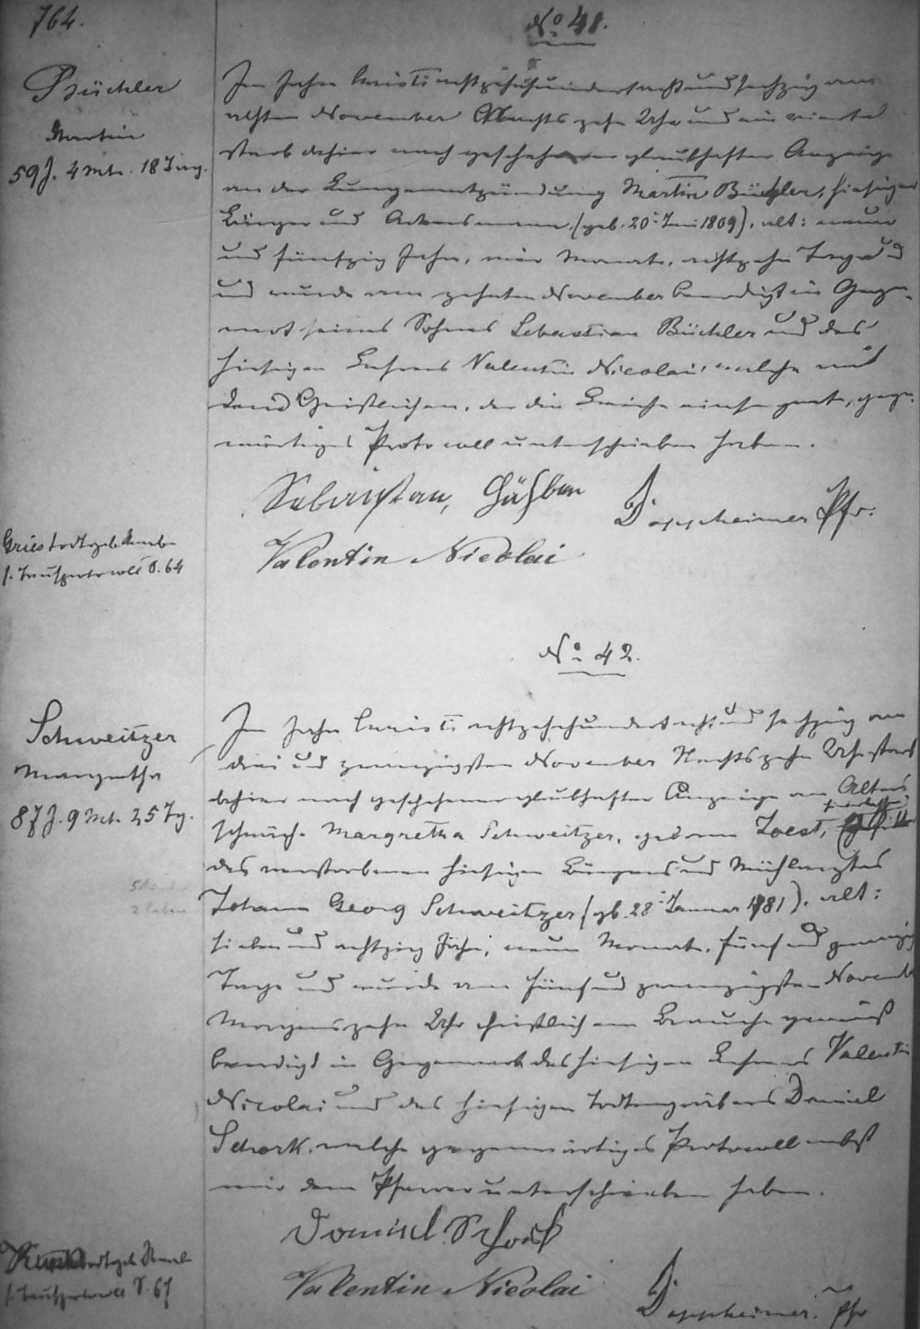 764.
No 41.
Büchler
Martin
59 J. 4 Mt. 18 Tag.
Im Jahr Christi achtzehnhundertachtundsechzig am
achten November Nachts zehn Uhr und ein viertel
starb dahier nach geschehener glaubhafter Anzeige
an der Lungenentzündung Martin Büchler, hiesiger
Bürger und Ackersmann, (geb. 20t Juni 1809), alt: neun
und fünfzig Jahre, vier Monate, achtzehn Tage
und wurde am zehnten November beerdigt in Gegen-
wart seines Sohnes Sebastian Büchler und des
hiesigen Lehrers Valentin Nicolai, welche mit
dem Geistlichen, der die Leiche einsegnete, gegen-
wärtiges Protocoll unterschrieben haben.
Sebastian
Doppheimer Pfr.
Valentin Nicolai
Gries todtgeb. Knabe
s. Taufprotocoll S. 64
No 42.
Schweitzer
Margretha
87 J. 9 Mt. 25 Tg.
Im Jahr Christi achtzehnhundertachtundsechzig am
drei und zwanzigsten November Nachts zehn Uhr starb
dahier nach geschehener glaubhafter Anzeige an Alters-
schwäche Margretha Schweitzer, geborene Joest,
des verstorbenen hiesigen Bürgers und
Johann Georg Schweitzer (gb. 28t Januar 1781), alt:
sieben und achtzig Jahre, neun Monate, fünf und zwanzig
Tage und wurde am fünf und zwanzigsten November
Morgens zehn Uhr christlichem Brauche gemäß
beerdigt in Gegenwart des hiesigen Lehrers Valentin
Nicolai und des hiesigen Todtengräbers Daniel
Schork, welche gegenwärtiges Protocoll nebst
mir dem Pfarrer unterschrieben haben.
Daniel Schork
Valentin Nicolai
Doppheimer. Pfr
todtgeb.
s. Taufprotocoll S. 67